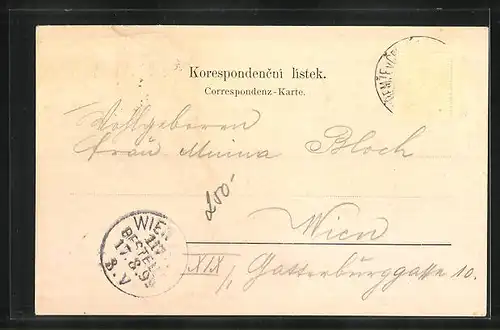 Korespondenční lístek.
Correspondenz-Karte.
Wohlgeboren
Frau Minna Bloch
200-
Wien
XIX/1 Gatterburggasse 10.
WIEN
117
BESTELLT
17.8.99
8.V